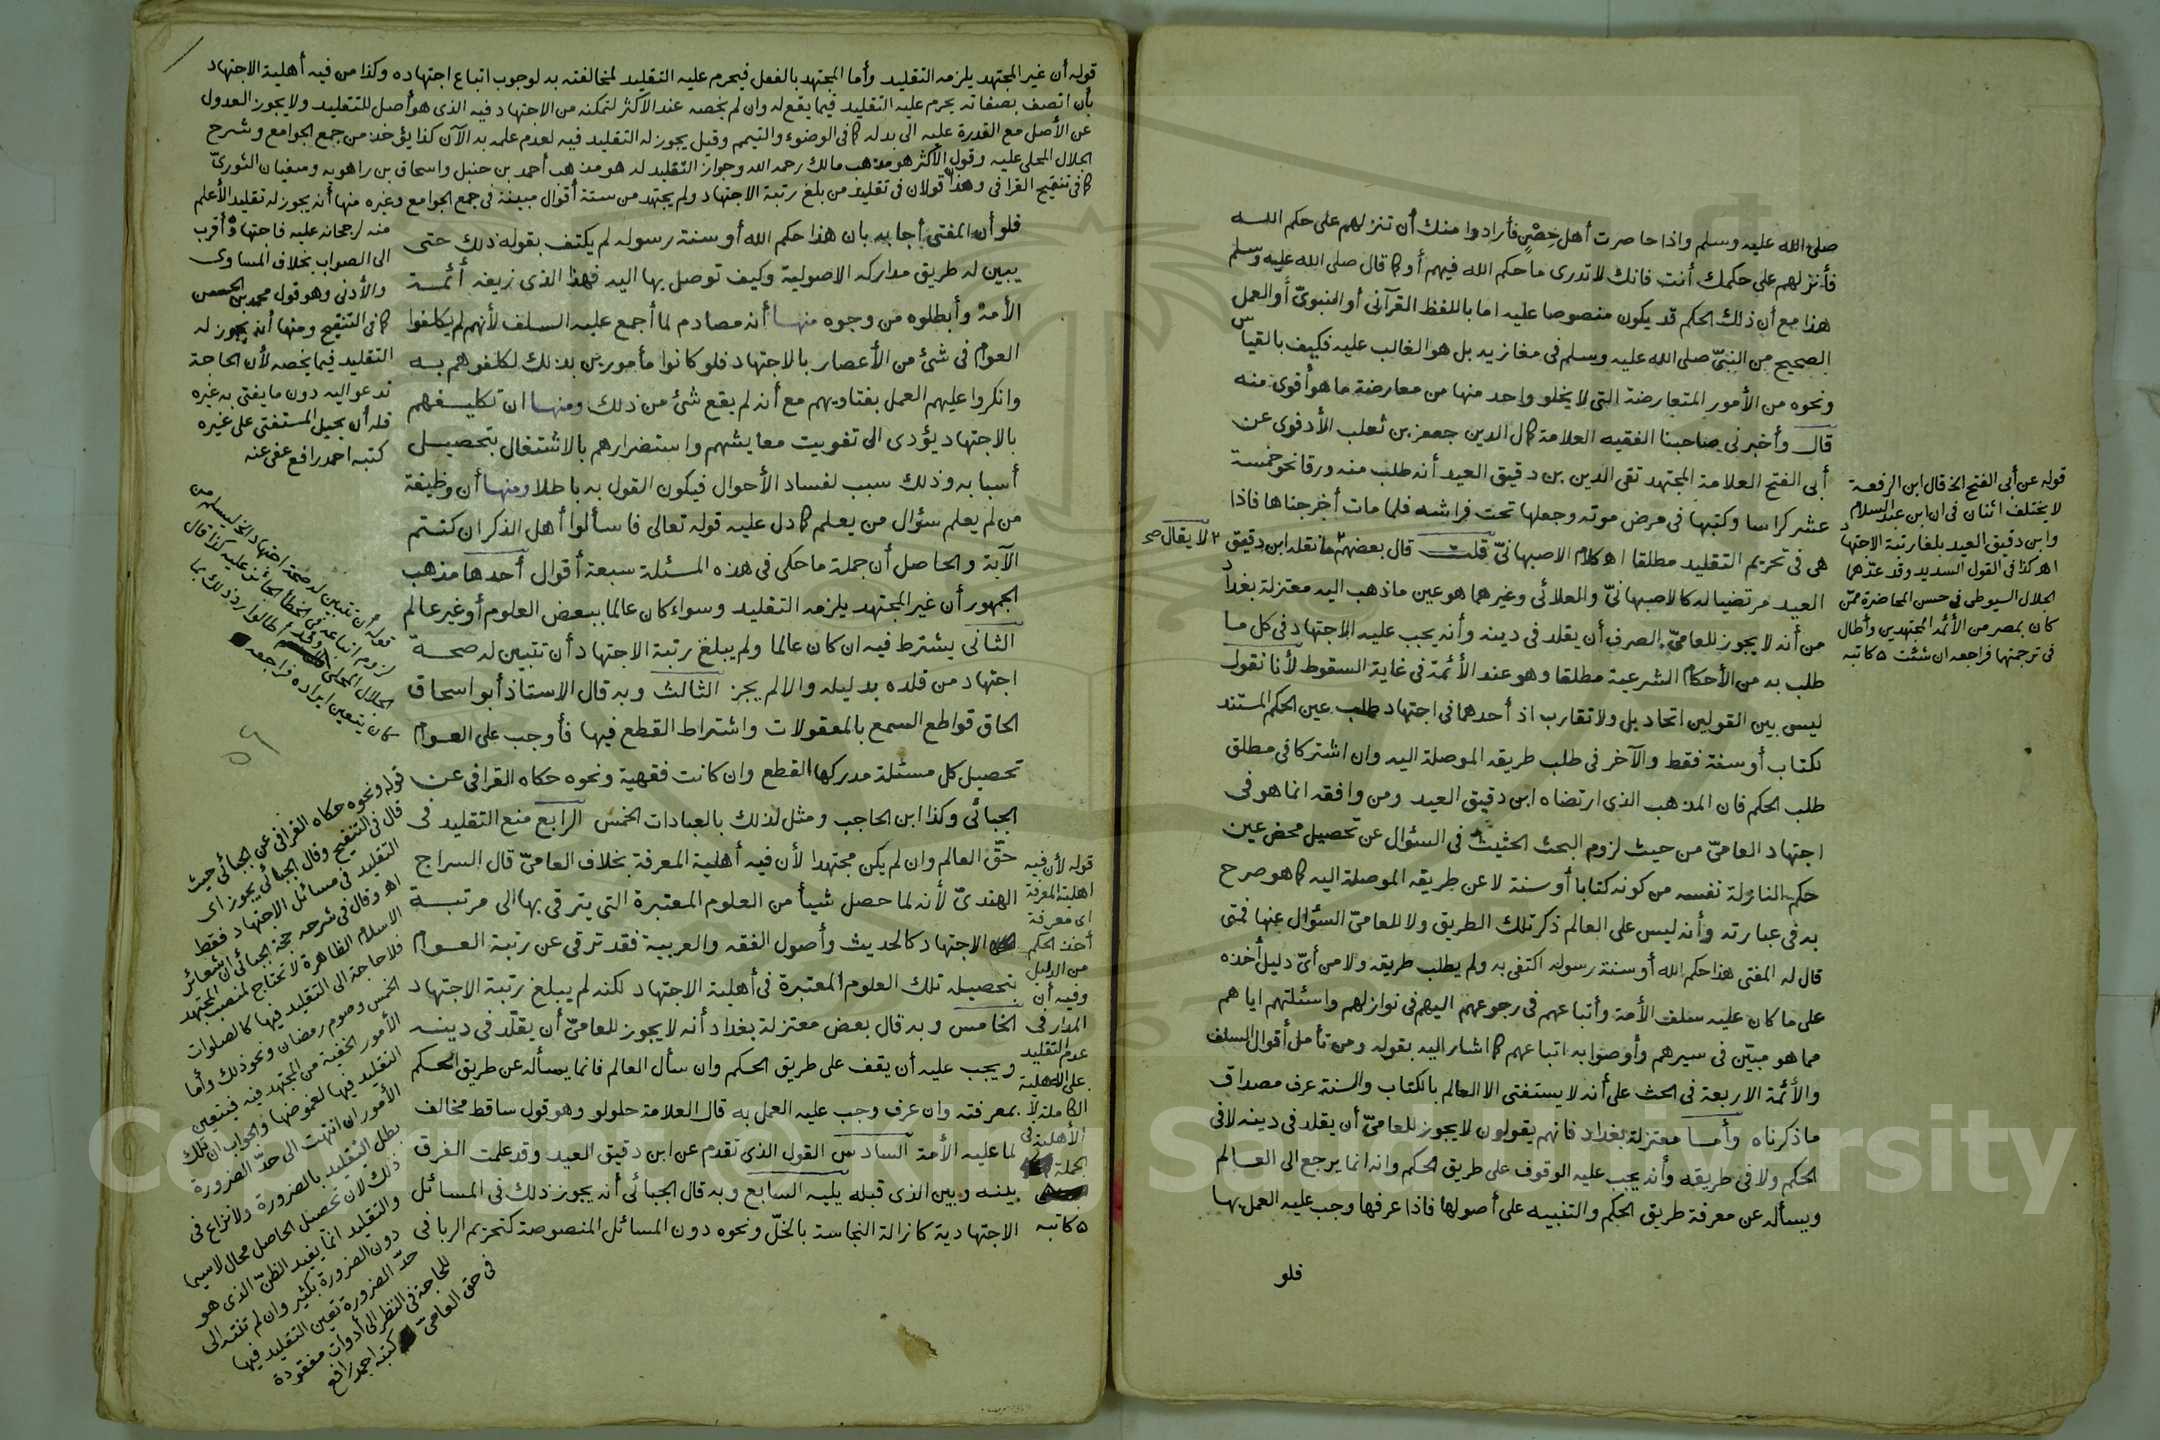 صلى الله عليه وسلم واذا حاصرت أهل حصن فأرادوا منك أن تنزلهم على حكم الله
فأنزلهم على حكمك أنت فانك لا تدرى ما حكم الله فيهم أو كما قال صلى الله عليه وسلم
هذا مع أن ذلك الحكم قد يكون منصوصا عليه اما باللفظ القرآنى أو النبوىّ أو العمل
الصحيح من النبىّ صلى الله عليه وسلم فى مغازيه بل هو الغالب عليه فكيف بالقياس
ونحوه من الأمور المتعارضة التى لا يخلو واحد منها من معارضة ما هو أقوى منه
قال وأخبرنى صاحبنا الفقيه العلامة كمال الدين جعفر بن ثعلب الأدفوى عن
أبى الفتح العلامة المجتهد تقى الدين بن دقيق العيد أنه طلب منه ورقا نحو خمسة
عشر كراسا وكتبها فى مرض موته وجعلها تحت فراشه فلما مات أخرجناها فاذا
هى فى تحريم التقليد مطلقا اهـ كلام الاصبهانىّ قلت قال بعضهم ما نقله ابن دقيق
العيد مرتضيا له كالاصبهانىّ والعلائى وغيرهما هو عين ما ذهب اليه معتزلة بغداد
من أنه لا يجوز للعامىّ الصرف أن يقلد فى دينه وأنه يجب عليه الاجتهاد فى كل ما
طلب به من الأحكام الشرعية مطلقا وهو عند الأئمة فى غاية السقوط لأنا نقول
ليس بين القولين اتحاد بل ولا تقارب اذ أحدهما فى اجتهاد طلب عين الحكم المستند
لكتاب أو سنة فقط والآخر فى طلب طريقه الموصلة اليه وان اشتركا فى مطلق
طلب الحكم فان المذهب الذى ارتضاه ابن دقيق العيد ومن وافقه انما هو فى
اجتهاد العامىّ من حيث لزوم البحث الحثيث فى السؤال عن تحصيل محض عين
حكم النازلة نفسه من كونه كتابا أو سنة لا عن طريقه الموصلة اليه كما هو صرح
به فى عبارته وأنه ليس على العالم ذكر تلك الطريق ولا للعامىّ السؤال عنها فمتى
قال له المفتى هذا حكم الله أو سنة رسوله اكتفى به ولم يطلب طريقه ولا من أىّ دليل أخذه
على ما كان عليه سلف الأمة وأتباعهم فى رجوعهم اليهم فى نوازلهم واسئلتهم اياهم
مما هو مبيّن فى سيرهم وأوصوا به اتباعهم كما اشار اليه بقوله ومن تأمل أقوال السلف
والأئمة الاربعة فى الحث على أنه لا يستفتى الا العالم بالكتاب والسنة عرف مصداق
ما ذكرناه وأما معتزلة بغداد فانهم يقولون لا يجوز للعامىّ أن يقلد فى دينه لا فى
الحكم ولا فى طريقه وأنه يجب عليه الوقوف على طريق الحكم وانه انما يرجع الى العالم
ويسأله عن معرفة طريق الحكم والتنبيه على أصولها فاذا عرفها وجب عليه العمل بها
فلو
لا يقال صح
قوله عن أبى الفتح الخ قال ابن الرفعة
لا يختلف اثنان فى ان ابن عبد السلام
وابن دقيق العيد بلغا رتبة الاجتهاد
اهـ كذا فى القول السديد وقد عدّهما
الجلال السيوطى فى حسن المحاضرة ممّن
كان بمصر من الأئمة المجتهدين وأطال
فى ترجمتها فراجعه ان شئت كاتبه
قوله أن غير المجتهد يلزمه التقليد وأما المجتهد بالفعل فيحرم عليه التقليد لمخالفته به لوجوب اتباع اجتهاده وكذا من فيه أهلية الاجتهاد
بأن اتصف بصفاته يحرم عليه التقليد فيما يقع له وان لم يخصه عند الأكثر لتمكنه من الاجتهاد فيه الذى هو أصل للتقليد ولا يجوز العدول
عن الأصل مع القدرة عليه الى بدله كما فى الوضوء والتيمم وقيل يجوز له التقليد فيه لعدم علمه به الآن كذا يؤخذ من جمع الجوامع وشرح
الجلال المحلى عليه وقول الأكثر هو مذهب مالك رحمه الله وجواز التقليد له هو مذهب أحمد بن حنبل واسحاق بن راهويه وسفيان الثورىّ
كما فى تنقيح القرافى وهذان قولان فى تقليد من بلغ رتبة الاجتهاد ولم يجتهد من ستة أقوال مبينة فى جمع الجوامع وغيره منها أنه يجوز له تقليد الأعلم
منه لرجحانه عليه فاجتهاده أقرب
الى الصواب بخلاف المساوى
والأدنى وهو قول محمد بن الحسن
كما فى التنقيح ومنها أنه يجوز له
التقليد فيما يخصه لأن الحاجة
تدعو اليه دون ما يفتى به غيره
فله أن يحيل المستفتى على غيره
كتبه احمد رافع عفى عنه
فلو أن المفتى أجابه بان هذا حكم الله أو سنة رسوله لم يكتف بقوله ذلك حتى
يبين له طريق مداركه الاصولية وكيف توصل بها اليه فهذا الذى زيفه أئمة
الأمة وأبطلوه من وجوه منها أنه مصادم لما أجمع عليه السلف لأنهم لم يكلفوا
العوام فى شئ من الأعصار بالاجتهاد فلو كانوا مأمورين بذلك لكلفوهم به
وانكروا عليهم العمل بفتاويهم مع أنه لم يقع شئ من ذلك ومنها ان تكليفهم
بالاجتهاد يؤدى الى تفويت معايشهم واستضرارهم بالاشتغال بتحصيل
أسبابه وذلك سبب لفساد الأحوال فيكون القول به باطلا ومنها أن وظيفة
من لم يعلم سؤال من يعلم كما دل عليه قوله تعالى فاسألوا أهل الذكر ان كنتم
الآية والحاصل أن جملة ما حكى فى هذه المسئلة سبعة أقوال أحدها مذهب
الجمهور أن غير المجتهد يلزمه التقليد وسواء كان عالما ببعض العلوم أو غير عالم
الثانى يشترط فيه ان كان عالما ولم يبلغ رتبة الاجتهاد أن تتبين له صحة
اجتهاد من قلده بدليله والا لم يجز الثالث وبه قال الاستاذ أبو اسحاق
الحاق قواطع السمع بالمعقولات واشتراط القطع فيها فأوجب على العوام
تحصيل كل مسئلة مدركها القطع وان كانت فقهية ونحوه حكاه القرافى عن
الجبائى وكذا ابن الحاجب ومثل لذلك بالعبادات الخمس الرابع منع التقليد فى
حقّ العالم وان لم يكن مجتهدا لأن فيه أهلية المعرفة بخلاف العامىّ قال السراج
الهندىّ لأنه لما حصل شيأ من العلوم المعتبرة التى يترقى بها الى مرتبة
الاجتهاد كالحديث وأصول الفقه والعربية فقد ترقى عن رتبة العوام
بتحصيله تلك العلوم المعتبرة فى أهلية الاجتهاد لكنه لم يبلغ رتبة الاجتهاد
الخامس وبه قال بعض معتزلة بغداد أنه لا يجوز للعامىّ أن يقلّد فى دينه
ويجب عليه أن يقف على طريق الحكم وان سأل العالم فانما يسأله عن طريق الحكم
بمعرفته وان عرف وجب عليه العمل به قال العلامة حلولو وهو قول ساقط مخالف
لما عليه الأمة السادس القول الذى تقدم عن ابن دقيق العيد وقد علمت الفرق
بينه وبين الذى قبله يليه السابع وبه قال الجبائى أنه يجوز ذلك فى المسائل
الاجتهادية كازالة النجاسة بالخلّ ونحوه دون المسائل المنصوصة كتحريم الربا فى
قوله لأن فيه
اهلية المعرفة
اى معرفة
أخذ الحكم
من الدليل
وفيه أن
المدار فى
عدم التقليد
على الاهلية
الكاملة لا
الأهلية فى
الجملة
كاتبه
قوله أن تتبين له صحة اجتهاد الخ ليسلم من
لزوم اتباعه فى الخطأ الجائز عليه كذا قال
الجلال المحلى وقد أطالوا رد ذلك بما
كان يتعين ايراده فراجعه
قوله ونحوه حكاه القرافى عن الجبائى حيث
قال فى التنقيح وقال الجبائى يجوز اى
التقليد فى مسائل الاجتهاد فقط
اهـ وقال فى شرحه حجة الجبائى ان شعائر
الاسلام الظاهرة لا تحتاج لمنصب المجتهد
فلا حاجة الى التقليد فيها كالصلوات
الخمس وصوم رمضان ونحو ذلك وأما
الأمور الخفية من المجتهد فيه فيتعين
التقليد فيها لغموضها والجواب ان تلك
الأمور ان انتهت الى حدّ الضرورة
بطل التقليد بالضرورة ولا نزاع فى
ذلك لأن تحصيل الحاصل محال لا سيما
والتقليد انما يفيد الظنّ الذى هو
دون الضرورة بكثير وان لم تنته الى
حدّ الضرورة تعين التقليد فيها
للحاجة فى النظر الى أدوات مفقودة
فى حق العامىّ كتبه احمد رافع
Copyright © King Saud University